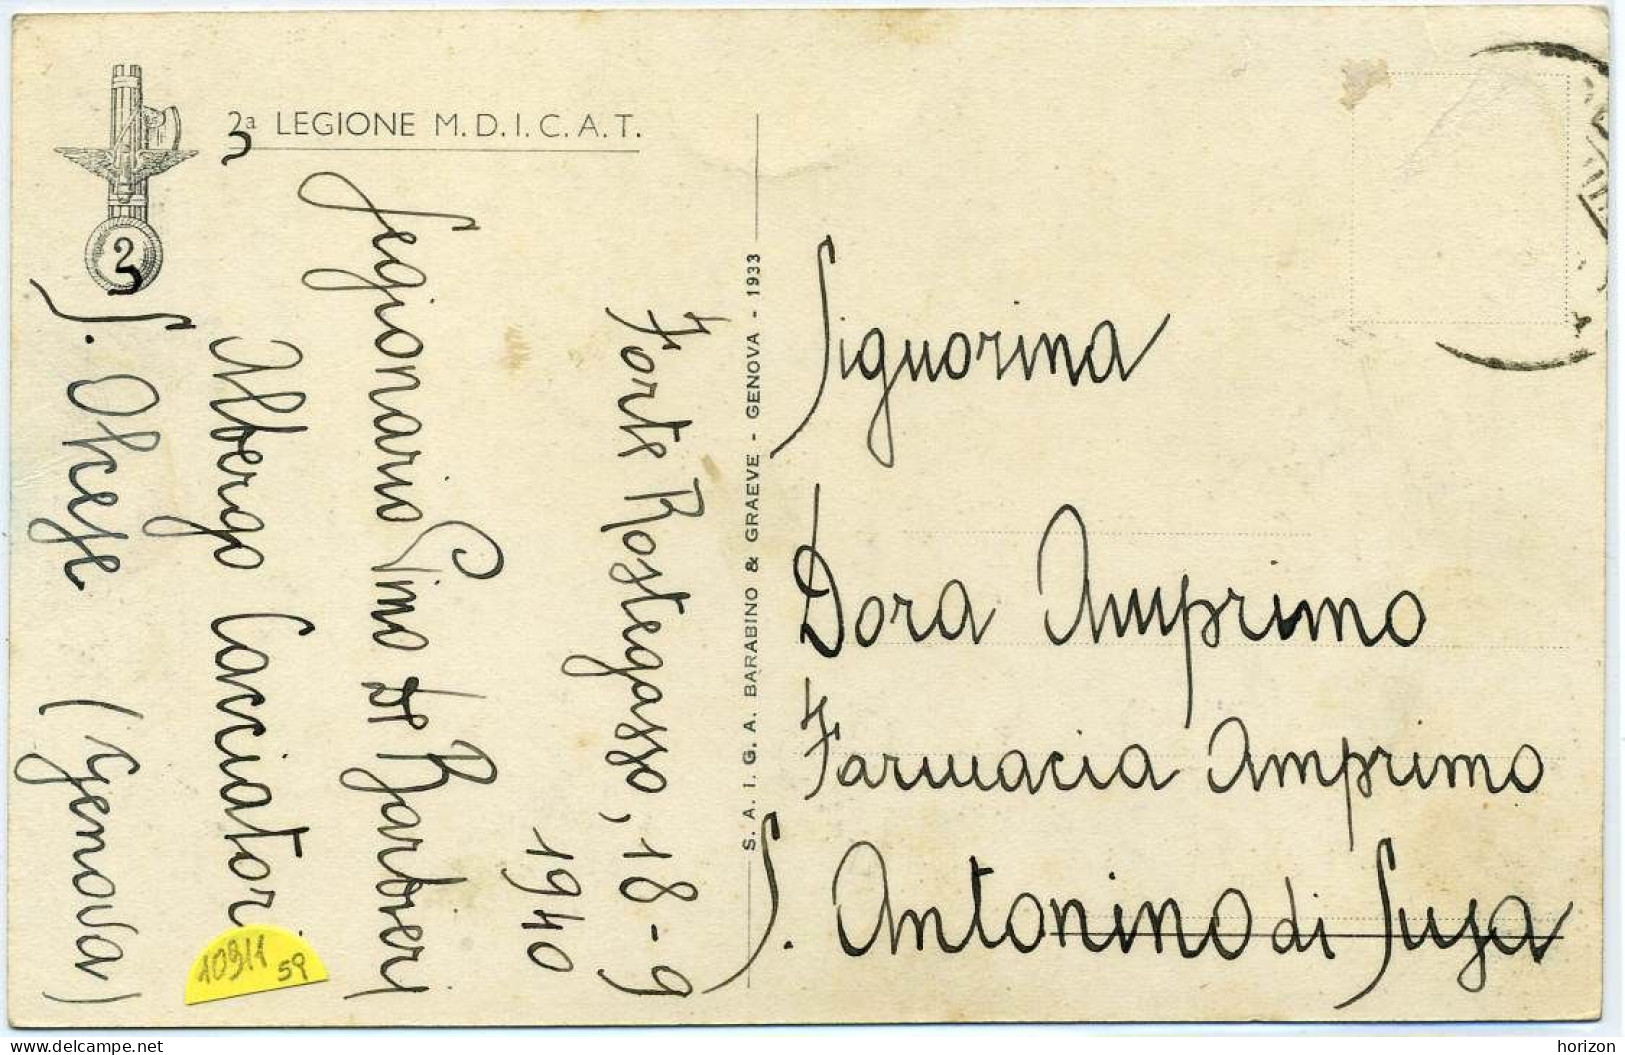 2ª LEGIONE M.D.I.C.A.T.
2
Forte Rostegasso, 18-9
1940
Legionario Pino De Barbieri
Albergo Cacciatori
S. Olcese (Genova)
S. A. I. G. A. BARABINO & GRAEVE - GENOVA - 1933
Signorina
Dora Amprimo
Farmacia Amprimo
S. Antonino di Susa
10911
59
horizon